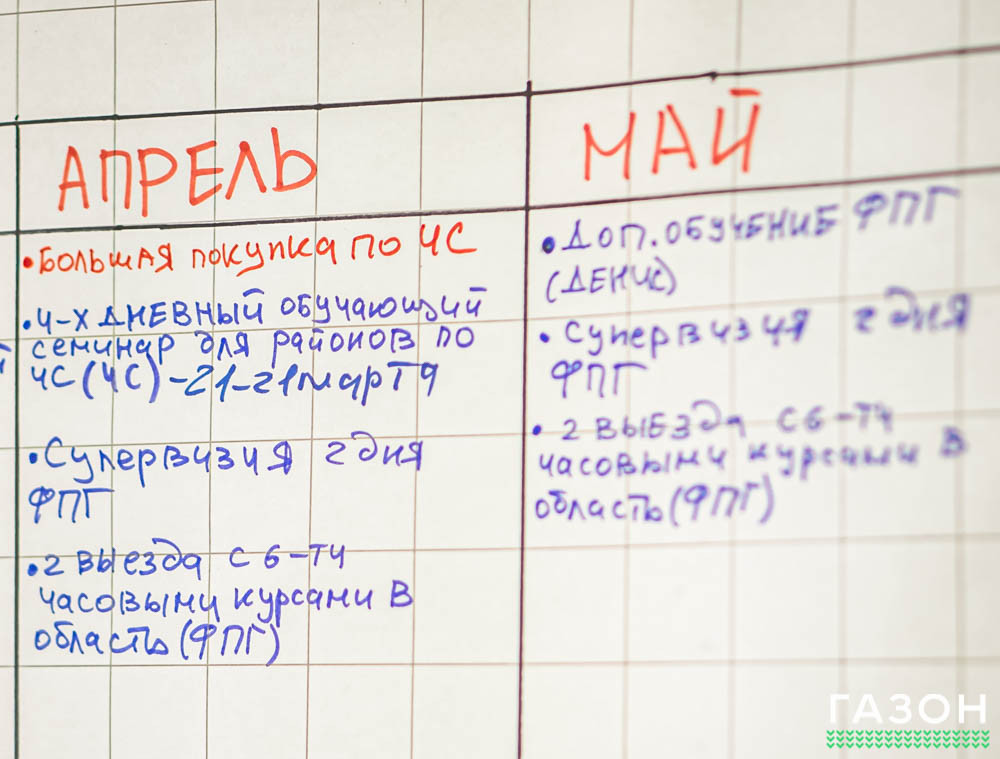 АПРЕЛЬ
• БОЛЬШАЯ ПОКУПКА ПО ЧС
• 4-Х ДНЕВНЫЙ ОБУЧАЮЩИЙ
семинар для районов по
ЧС (ЧС) - 21-21 марта
• Супервизия 2 дня
ФПГ
• 2 выезда с 6-ТИ
часовыми курсами в
область (ФПГ)
МАЙ
• ДОП. ОБУЧЕНИЕ ФПГ
(ДЕНИС)
• Супервизия 2 дня
ФПГ
• 2 ВЫЕЗДА С 6-ТИ
часовыми курсами в
область (ФПГ)
ГАЗОН